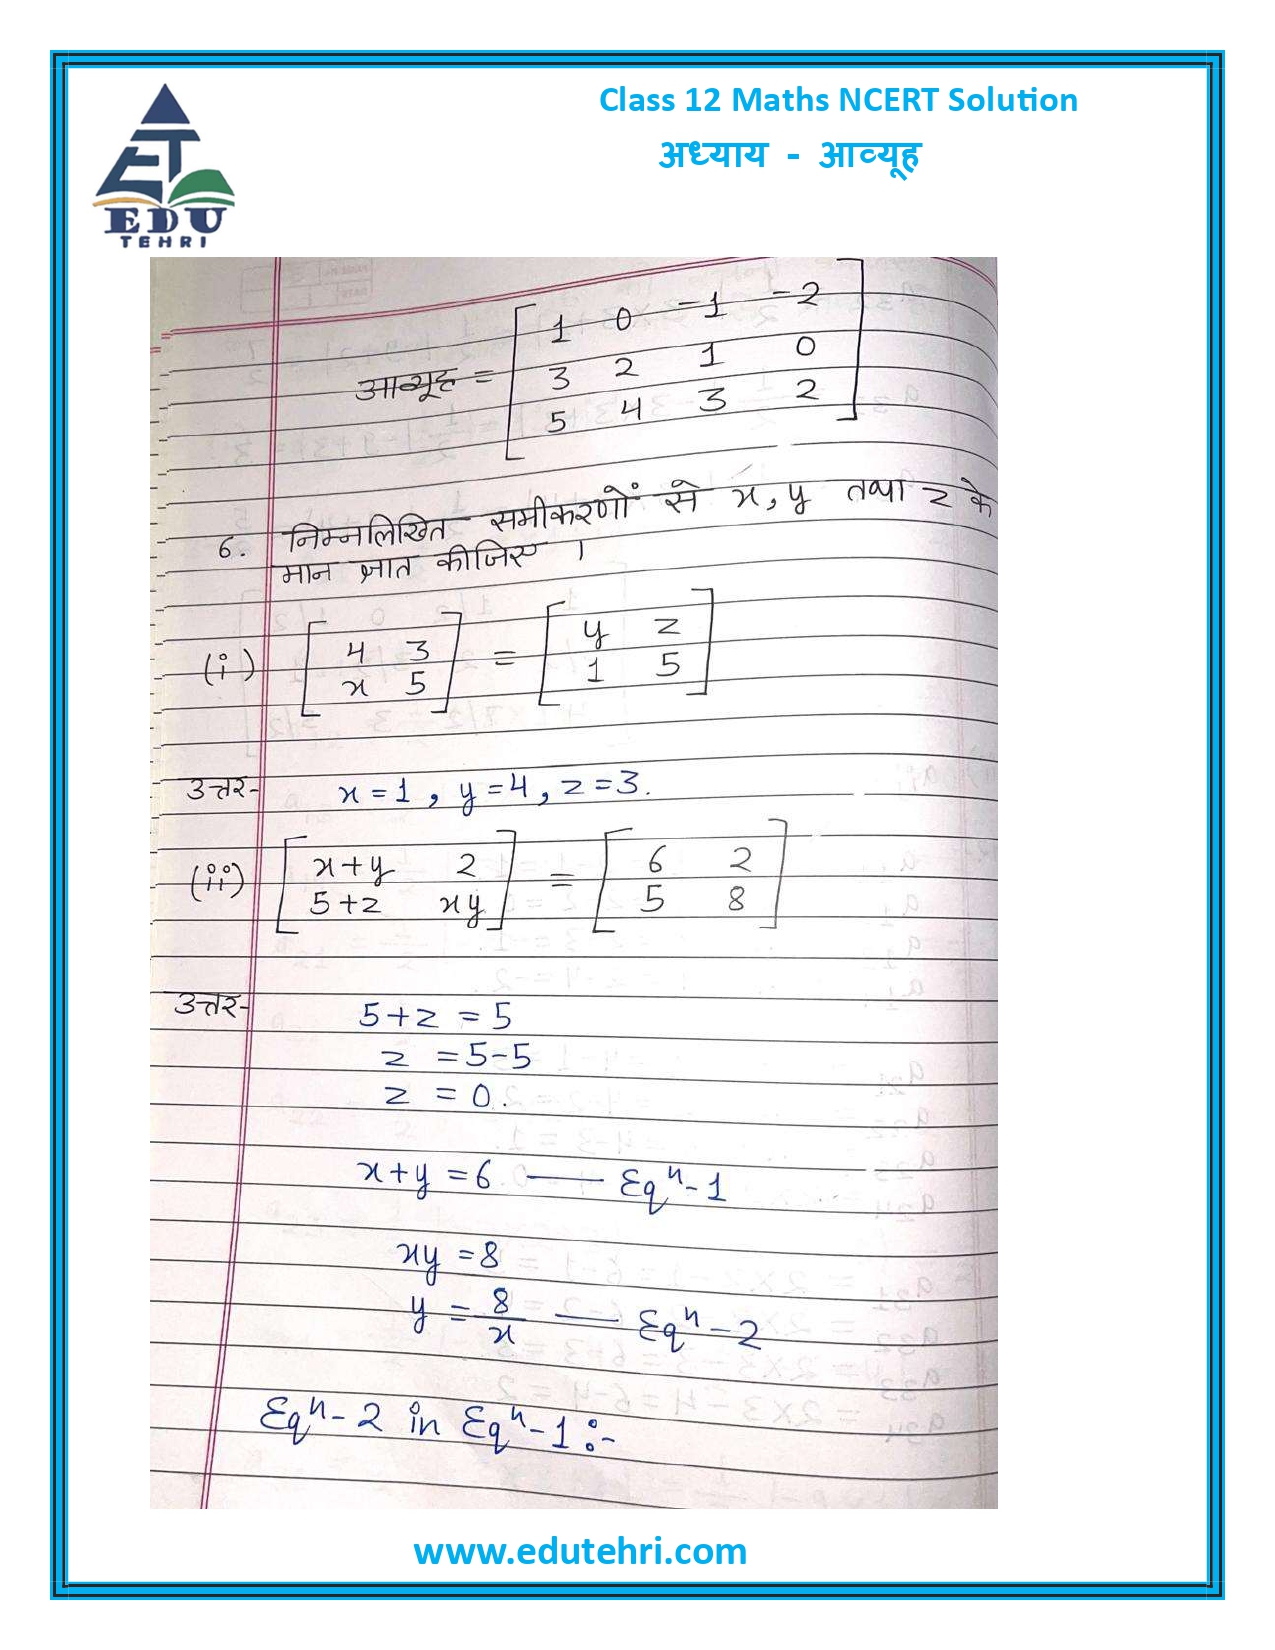 Class 12 Maths NCERT Solution
अध्याय - आव्यूह
ET
EDU
TEHRI
आव्यूह = [1 0 -1 -2
3 2 1 0
5 4 3 2]
6. निम्नलिखित समीकरणों से x, y तथा z के
मान ज्ञात कीजिए ।
(i) [4 3 = [y z
x 5] 1 5]
उत्तर- x=1, y=4, z=3.
(ii) [x+y 2 = [6 2
5+z xy] 5 8]
उत्तर- 5+z = 5
z = 5-5
z = 0.
x+y = 6 —— Eqⁿ-1
xy = 8
y = 8/x —— Eqⁿ-2
Eqⁿ-2 in Eqⁿ-1 :-
www.edutehri.com